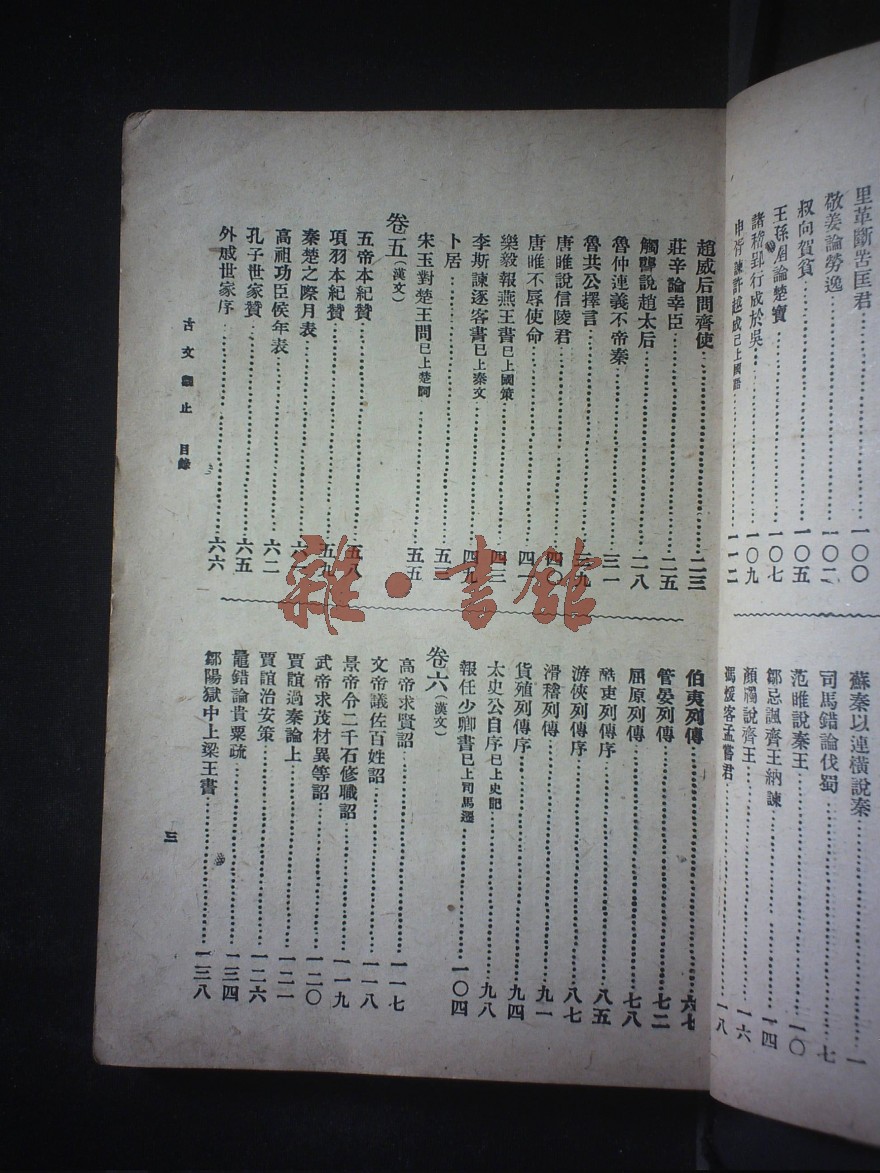 里革斷罟匡君 一〇〇
敬姜論勞逸 一〇二
叔向賀貧 一〇五
王孫圉論楚寶 一〇七
諸稽郢行成於吳 一〇九
申胥諫許越成已上國語 一一二
蘇秦以連橫說秦 一
司馬錯論伐蜀 七
范睢說秦王 一〇
鄒忌諷齊王納諫 一四
顏斶說齊王 一六
馮煖客孟嘗君 一八
趙威后問齊使 二三
莊辛論幸臣 二五
觸讋說趙太后 二八
魯仲連義不帝秦 三一
魯共公擇言 三九
唐雎說信陵君 四〇
唐雎不辱使命 四一
樂毅報燕王書已上國策 四三
李斯諫逐客書已上秦文 四九
卜居 五三
宋玉對楚王問已上楚詞 五五
卷五（漢文）
五帝本紀贊 五八
項羽本紀贊 五九
秦楚之際月表 六一
高祖功臣侯年表 六二
孔子世家贊 六五
外戚世家序 六六
伯夷列傳 六七
管晏列傳 七二
屈原列傳 七八
酷吏列傳序 八五
游俠列傳序 八七
滑稽列傳 九一
貨殖列傳序 九四
太史公自序已上史記 九八
報任少卿書已上司馬遷 一〇四
卷六（漢文）
高帝求賢詔 一一七
文帝議佐百姓詔 一一八
景帝令二千石修職詔 一一九
武帝求茂材異等詔 一二〇
賈誼過秦論上 一二一
賈誼治安策 一二六
鼂錯論貴粟疏 一三四
鄒陽獄中上梁王書 一三八
古文觀止 目錄
三
雜·書館